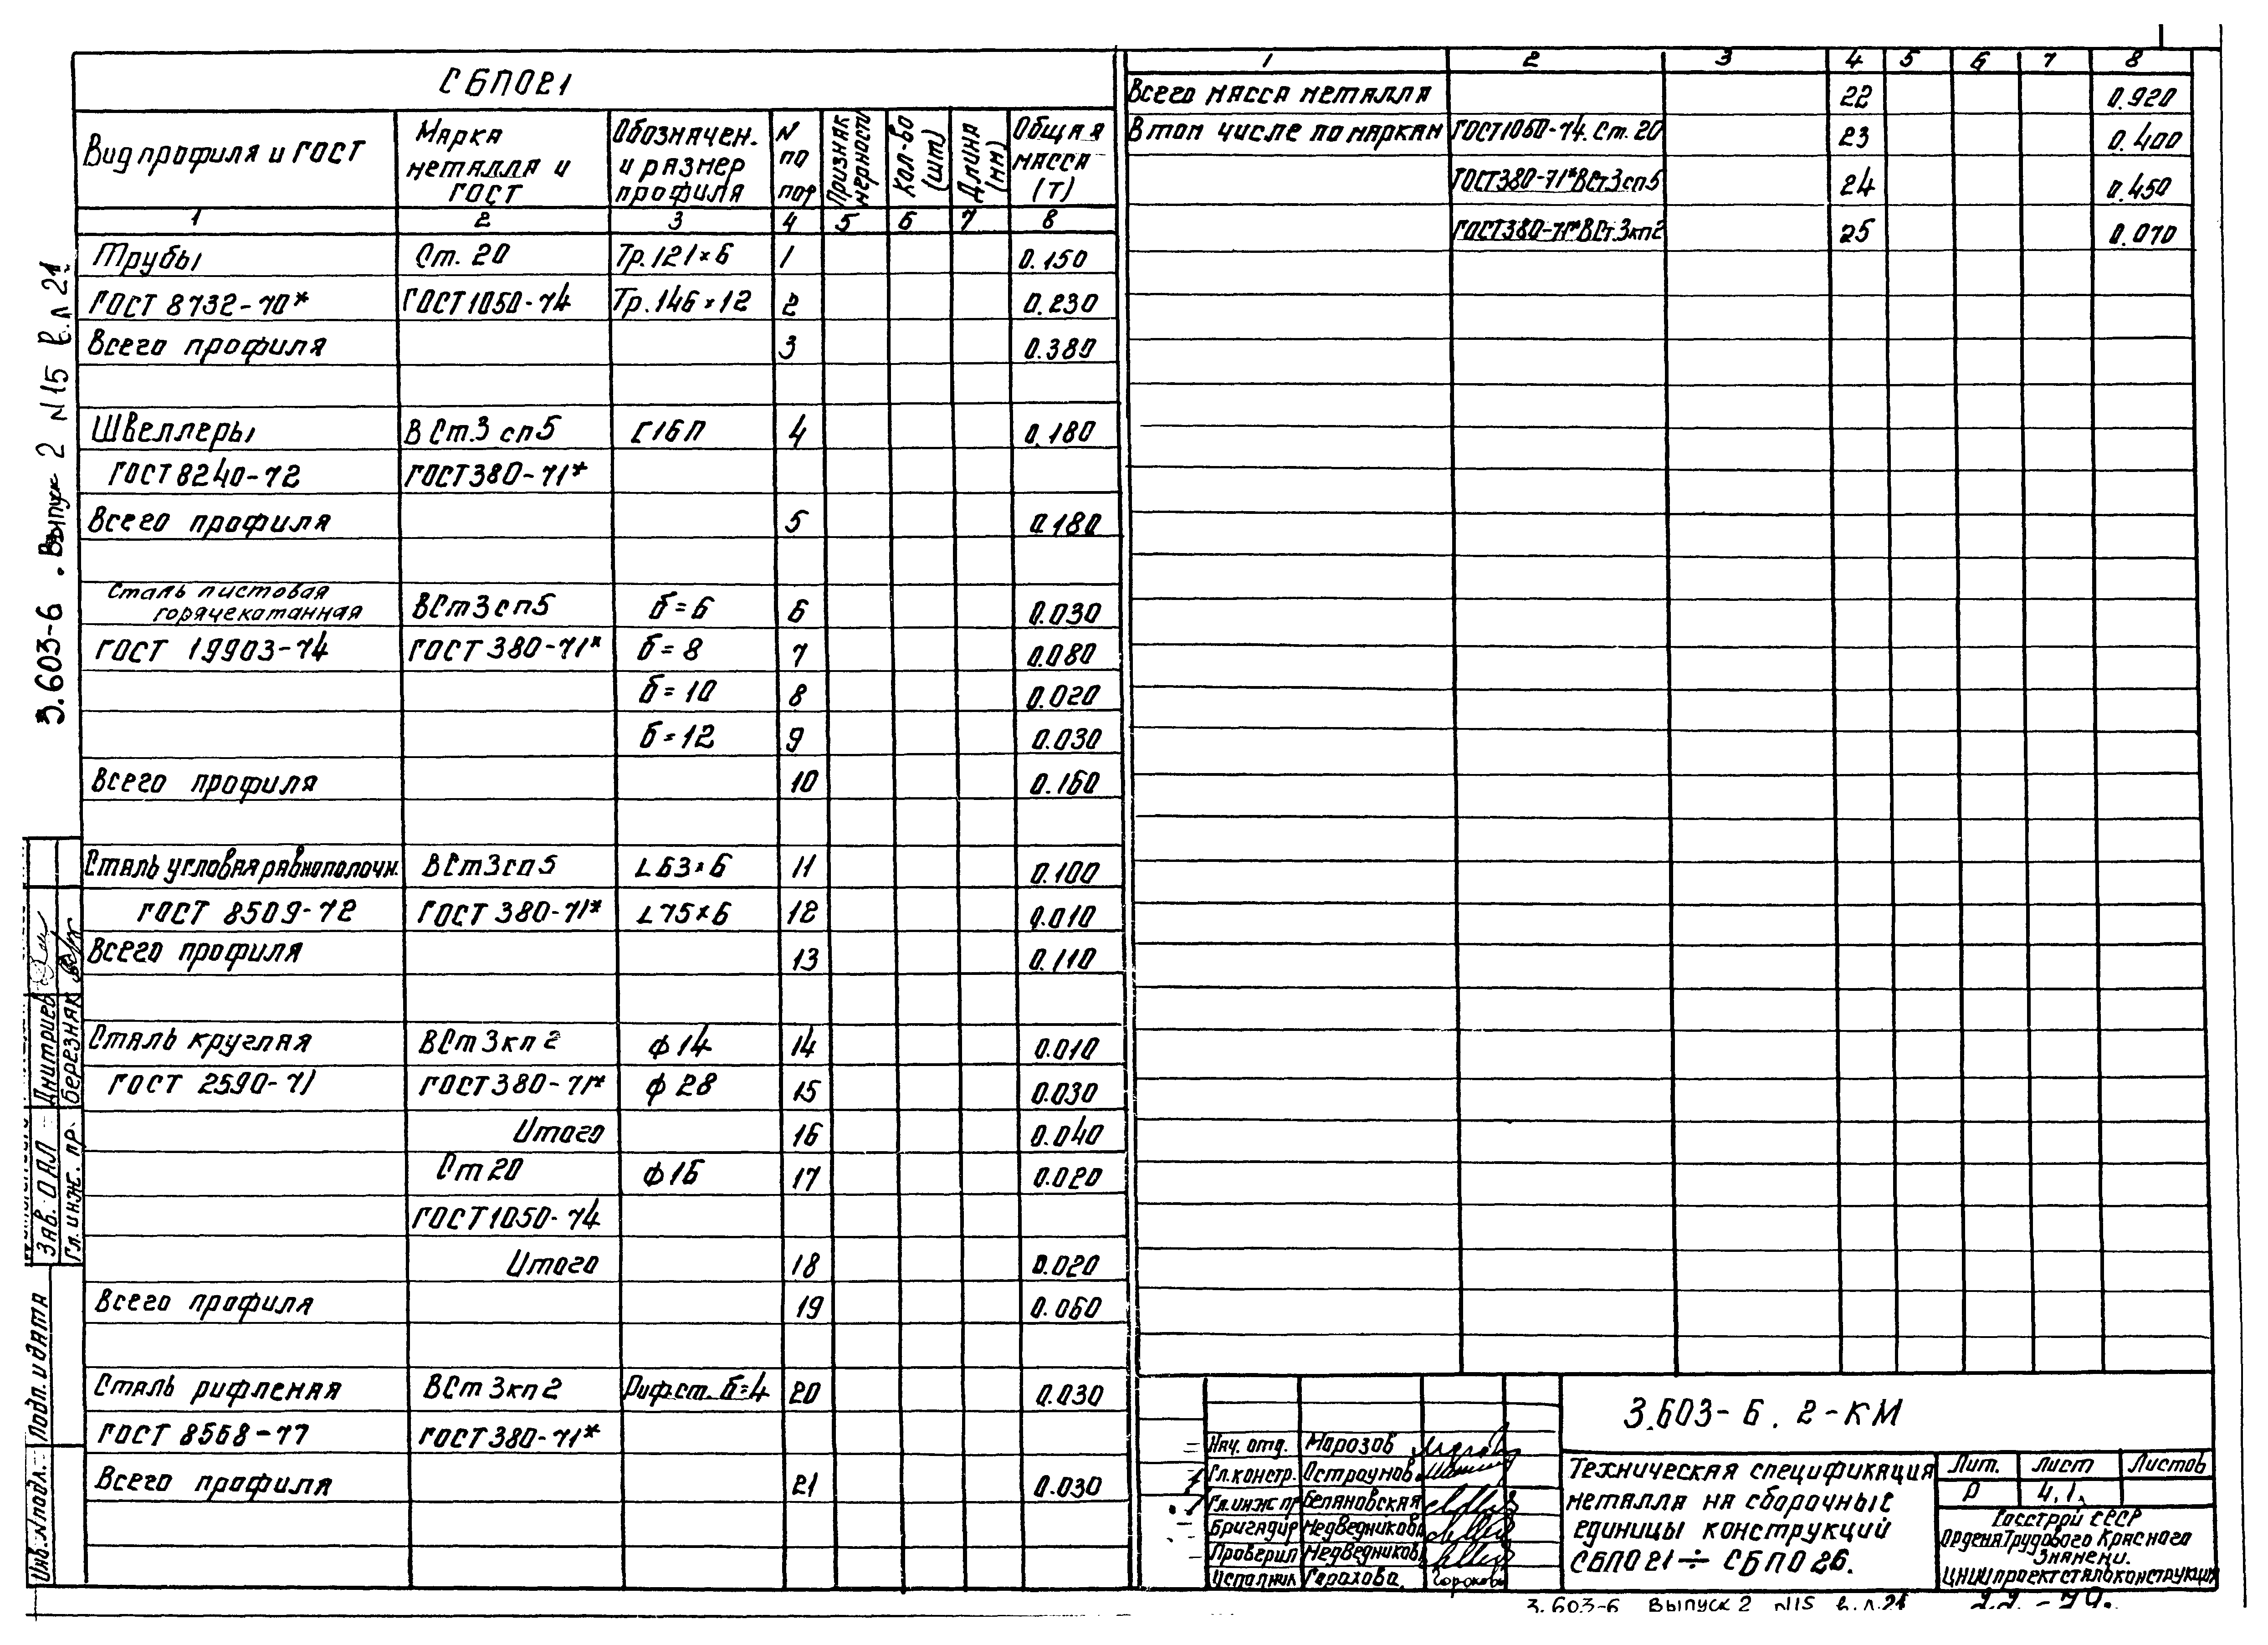 СБПО21
Вид профиля и ГОСТ | Марка металла и ГОСТ | Обозначен. и размер профиля | N по пор | Признак мерности | Кол-во (шт) | Длина (мм) | Общая масса (Т)
1 2 3 4 5 6 7 8
Трубы Ст. 20 Тр. 121×6 1 0.150
ГОСТ 8732-70* ГОСТ 1050-74 Тр. 146×12 2 0.230
Всего профиля 3 0.380
Швеллеры ВСт.3 сп5 С16П 4 0.180
ГОСТ 8240-72 ГОСТ 380-71*
Всего профиля 5 0.180
Сталь листовая
горячекатанная ВСт3сп5 б=6 6 0.030
ГОСТ 19903-74 ГОСТ 380-71* б=8 7 0.080
б=10 8 0.020
б=12 9 0.030
Всего профиля 10 0.160
Сталь угловая равнополочн. ВСт3сп5 L63×6 11 0.100
ГОСТ 8509-72 ГОСТ 380-71* L75×6 12 0.010
Всего профиля 13 0.110
Сталь круглая ВСт3кп2 ф14 14 0.010
ГОСТ 2590-71 ГОСТ 380-71* ф28 15 0.030
Итого 16 0.040
Ст 20 ф16 17 0.020
ГОСТ 1050-74
Итого 18 0.020
Всего профиля 19 0.060
Сталь рифленая ВСт3кп2 Риф.ст. б=4 20 0.030
ГОСТ 8568-77 ГОСТ 380-71*
Всего профиля 21 0.030
1 2 3 4 5 6 7 8
Всего масса металла 22 0.920
В том числе по маркам ГОСТ 1050-74. Ст. 20 23 0.400
ГОСТ 380-71* ВСт3сп5 24 0.450
ГОСТ 380-71* ВСт.3кп2 25 0.070
3.603-6. Выпуск 2 N15 в.л 21
Зав. ОАЛ Дмитриев
Гл. инж. пр. Березняк
Подп. и дата
Инв. N подл.
Нач. отд. Морозов
Гл. констр. Остроумов
Гл. инж пр Беляновская
Бригадир Медведникова
Проверил Медведникова
Исполнил Горохова Горохова
3.603-6.2-КМ
Техническая спецификация
металла на сборочные
единицы конструкций
СБПО21÷СБПО26.
Лит. Лист Листов
Р 4.1.
Госстрой СССР
Ордена Трудового Красного
Знамени.
ЦНИИпроектстальконструкция
3.603-6 выпуск 2 N15 в.л.21